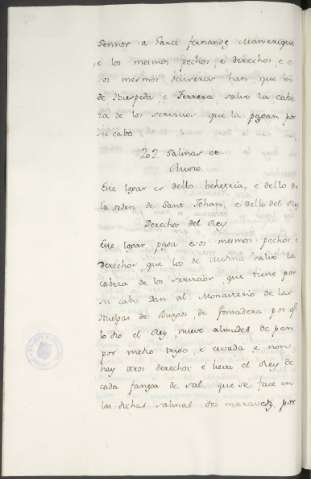 Sennor a Sanct fernandez Manrrique
e los mesmos pechos, e derechos, e e
os mesmos
de Huespeda e Ferrera salvo la cabe
za de los servicios que la pagan por
su cabo
202 Salinas de
Ruvio
Este logar es dello behetria, e dello de
la orden de Sant Johan, e dello del Rey
Derechos del Rey
Este logar paga esos mesmos pechos e
derechos que los de salvo la
cabeza de los servicios que tiene por
su cabo Dan al Monasterio de las
Huelgas de Burgos de fonsadera por ql
lo dio el Rey, nueve almudes de pan
por medio trigo e cevada e non
hay otros derechos e lieva el Rey de
cada fanega de sal que se face en
las dichas salinas dos maravedis por